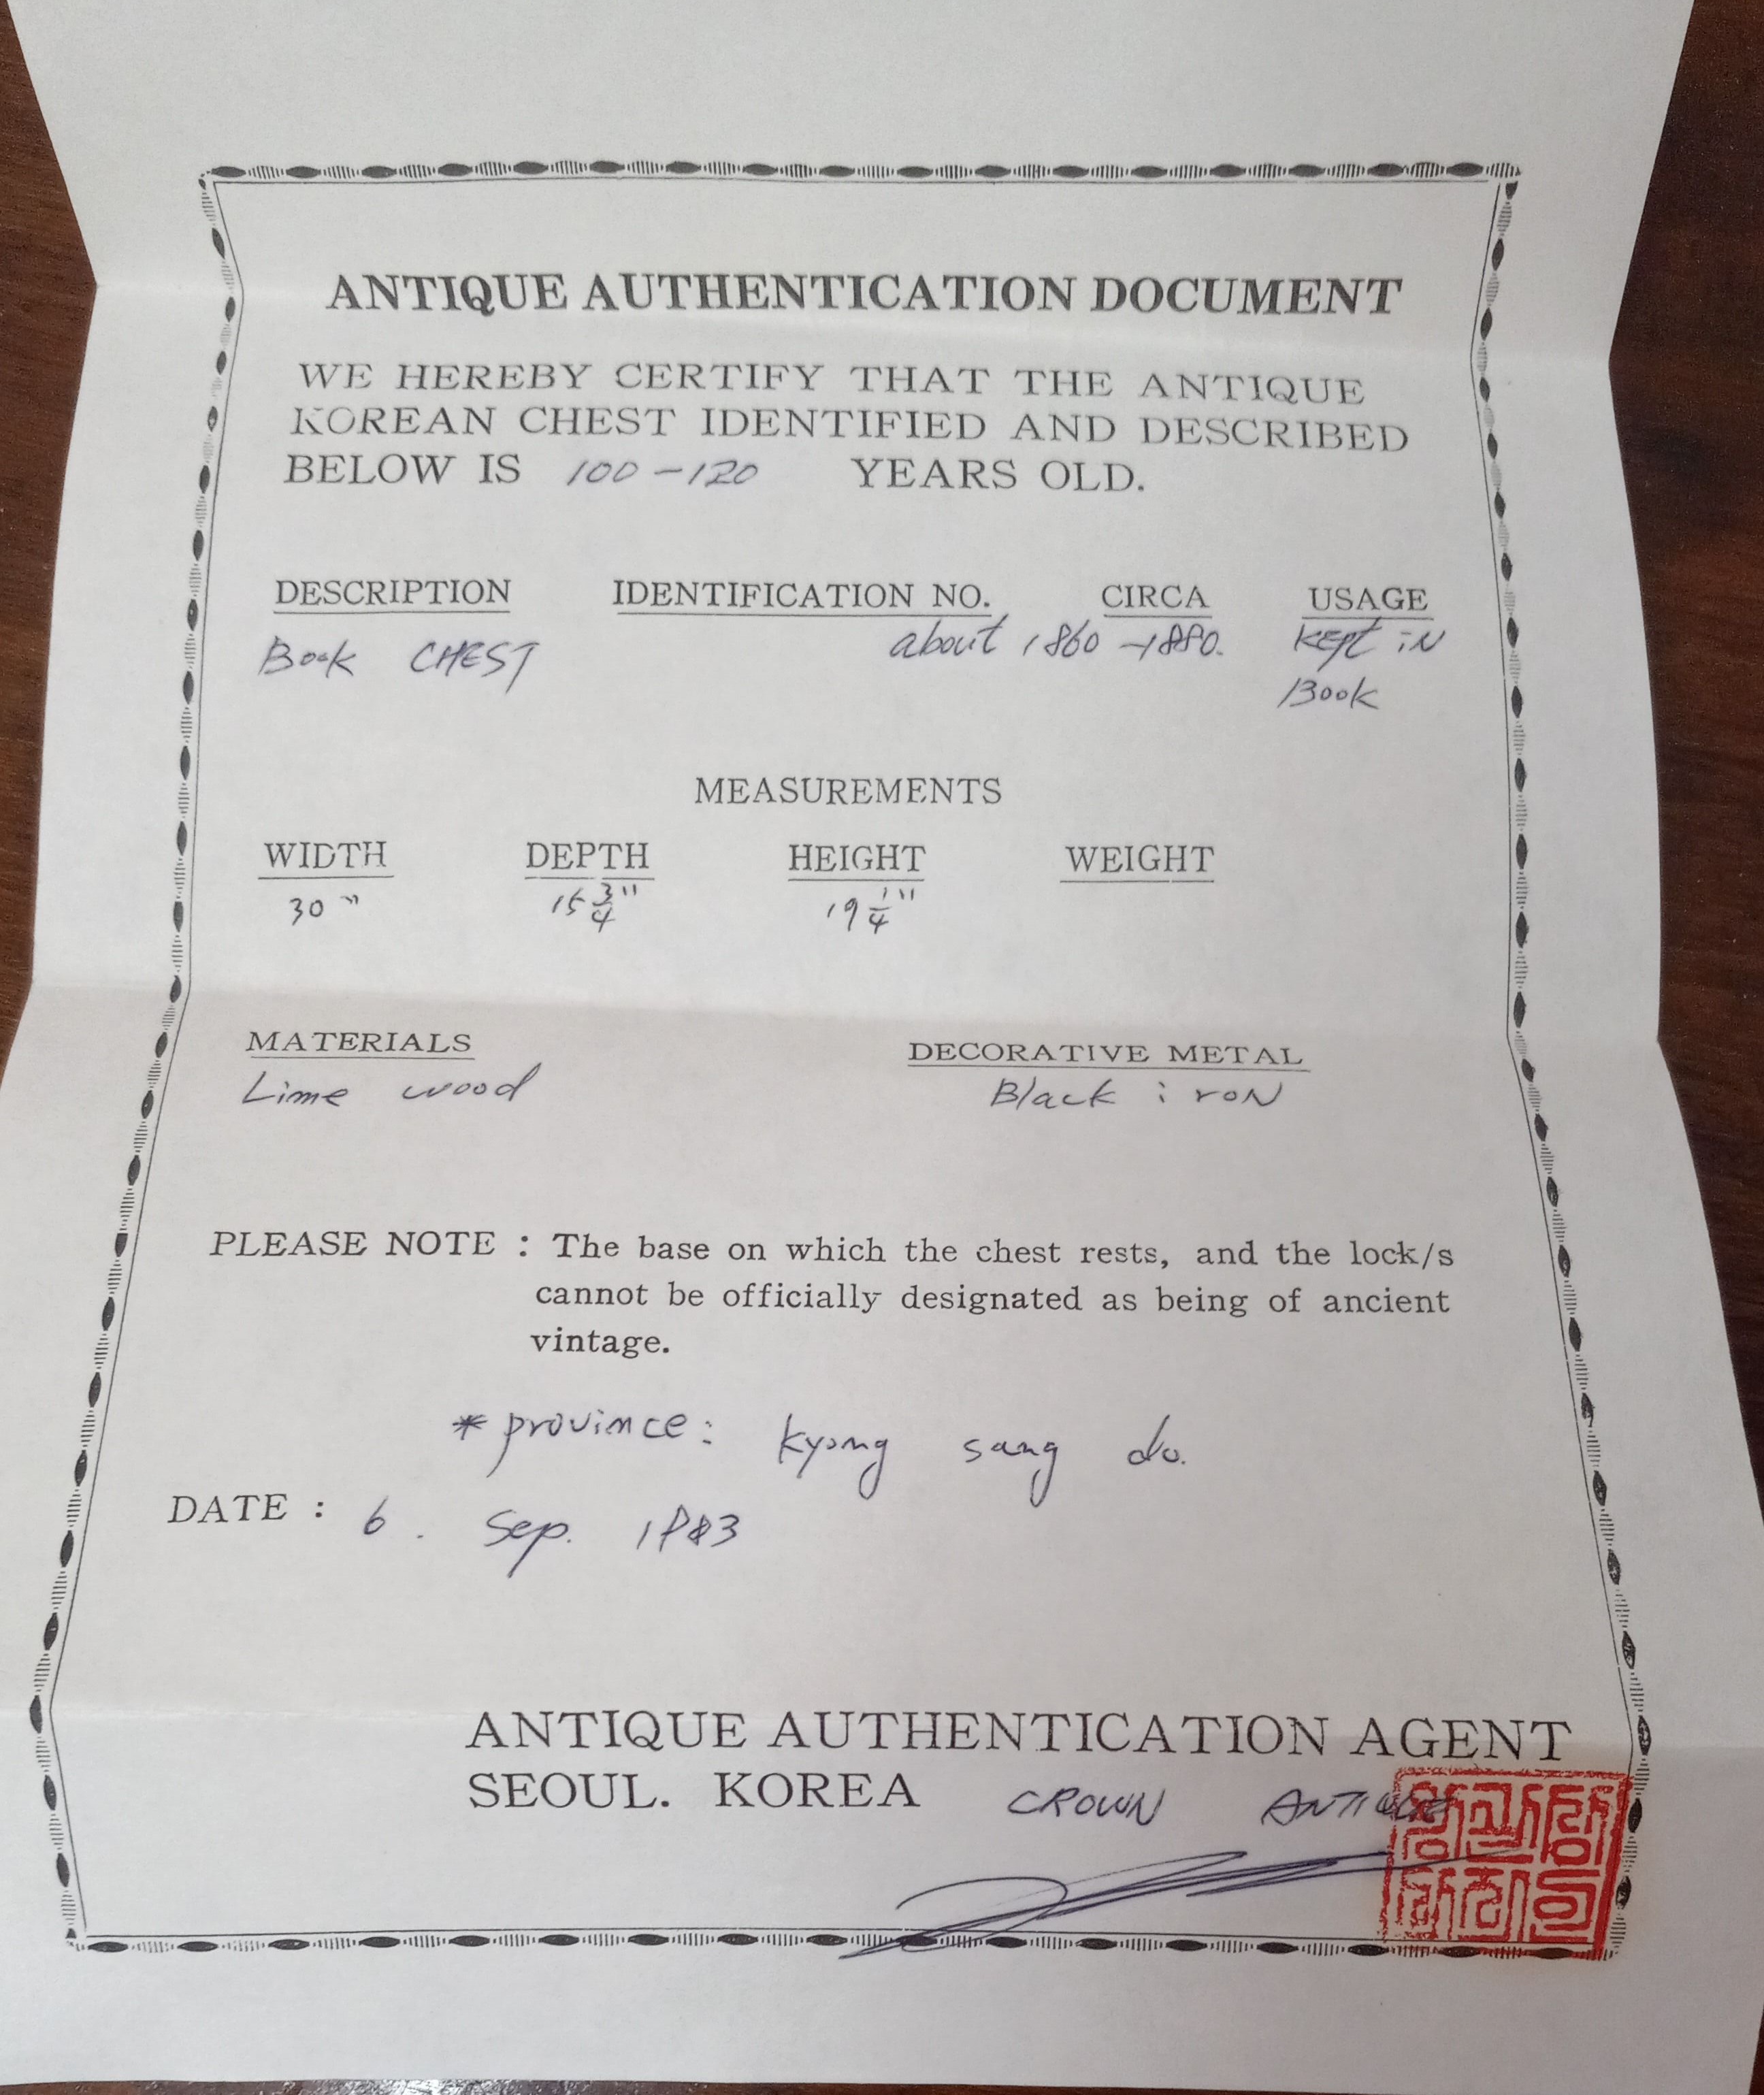 ANTIQUE AUTHENTICATION DOCUMENT
WE HEREBY CERTIFY THAT THE ANTIQUE
KOREAN CHEST IDENTIFIED AND DESCRIBED
BELOW IS 100-120 YEARS OLD.
DESCRIPTION IDENTIFICATION NO. CIRCA USAGE
Book CHEST about 1860-1880. Kept in
Book
MEASUREMENTS
WIDTH DEPTH HEIGHT WEIGHT
30" 15 3/4" 19 1/4"
MATERIALS DECORATIVE METAL
Lime wood Black iron
PLEASE NOTE : The base on which the chest rests, and the lock/s
cannot be officially designated as being of ancient
vintage.
* province: kyong sang do.
DATE : 6. Sep. 1983
ANTIQUE AUTHENTICATION AGENT
SEOUL. KOREA CROWN ANTIQUE